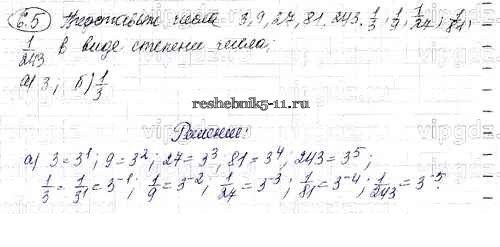 6.5 Представьте числа 3, 9, 27, 81, 243, 1/3, 1/9, 1/27, 1/81,
1/243 в виде степени числа:
а) 3; б) 1/3
reshebnik5-11.ru
Решение:
а) 3 = 3^1; 9 = 3^2; 27 = 3^3, 81 = 3^4; 243 = 3^5;
1/3 = 1/3^1 = 3^-1; 1/9 = 3^-2, 1/27 = 3^-3; 1/81 = 3^-4; 1/243 = 3^-5.